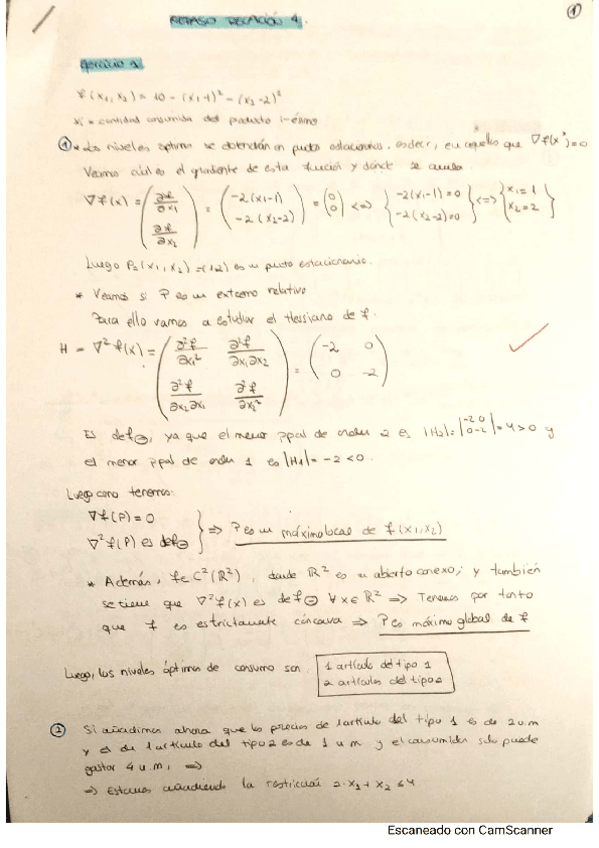 ①
REPASO RELACIÓN 4.
Ejercicio 1
f(x₁,x₂) = 10 - (x₁-1)² - (x₂-2)²
xi = cantidad consumida del producto i-ésimo
① * Los niveles óptimos se obtendrán en puntos estacionarios, es decir, en aquellos que ∇f(x*)=0
Veamos cuál es el gradiente de esta función y dónde se anula.
∇f(x) = (∂f/∂x₁ ; ∂f/∂x₂) = (-2(x₁-1) ; -2(x₂-2)) = (0 ; 0) <=> {-2(x₁-1)=0 ; -2(x₂-2)=0} <=> {x₁=1 ; x₂=2}
Luego P=(x₁,x₂)=(1,2) es un punto estacionario.
* Veamos si P es un extremo relativo
Para ello vamos a estudiar el Hessiano de f.
H = ∇²f(x) = (∂²f/∂x₁² ∂²f/∂x₁∂x₂ ; ∂²f/∂x₂∂x₁ ∂²f/∂x₂²) = (-2 0 ; 0 -2)
Es def⊖, ya que el menor ppal de orden 2 es |H₂|=|-2 0 ; 0 -2|=4>0 y
el menor ppal de orden 1 es |H₁|=-2<0.
Luego como tenemos:
∇f(P)=0
∇²f(P) es def⊖ } => P es un máximo local de f(x₁,x₂)
* Además, f∈C²(ℝ²), donde ℝ² es un abierto conexo; y también
se tiene que ∇²f(x) es def⊖ ∀x∈ℝ² => Tenemos por tanto
que f es estrictamente cóncava => P es máximo global de f
Luego, los niveles óptimos de consumo son: 1 artículo del tipo 1
2 artículos del tipo 2
② Si añadimos ahora que los precios de 1 artículo del tipo 1 es de 2 u.m
y el de 1 artículo del tipo 2 es de 1 u.m y el consumidor solo puede
gastar 4 u.m, =>
=> Estamos añadiendo la restricción 2·x₁+x₂≤4.
Escaneado con CamScanner